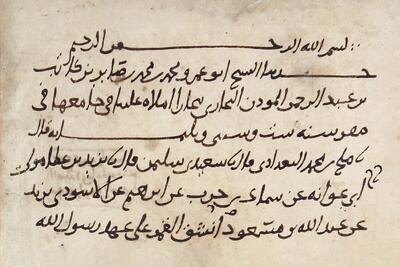 بسم الله الرحمن الرحيم
حدثنا الشيخ ابو عمرو محمد بن محمد بن صابر بن كاتب
بن عبد الرحمن المودن البخاري ببخارا املاه علينا في جامعها في
صفر سنه ست وسبعين وثلثمايه قال
نا صلح بن محمد البغدادي قال نا سعيد بن سليمن قال نا يزيد بن عطا مولى
ابي عوانه عن سماك بن حرب عن ابرهيم عن الاسود بن يزيد
عن عبد الله بن مسعود انشق القمر على عهد رسول الله